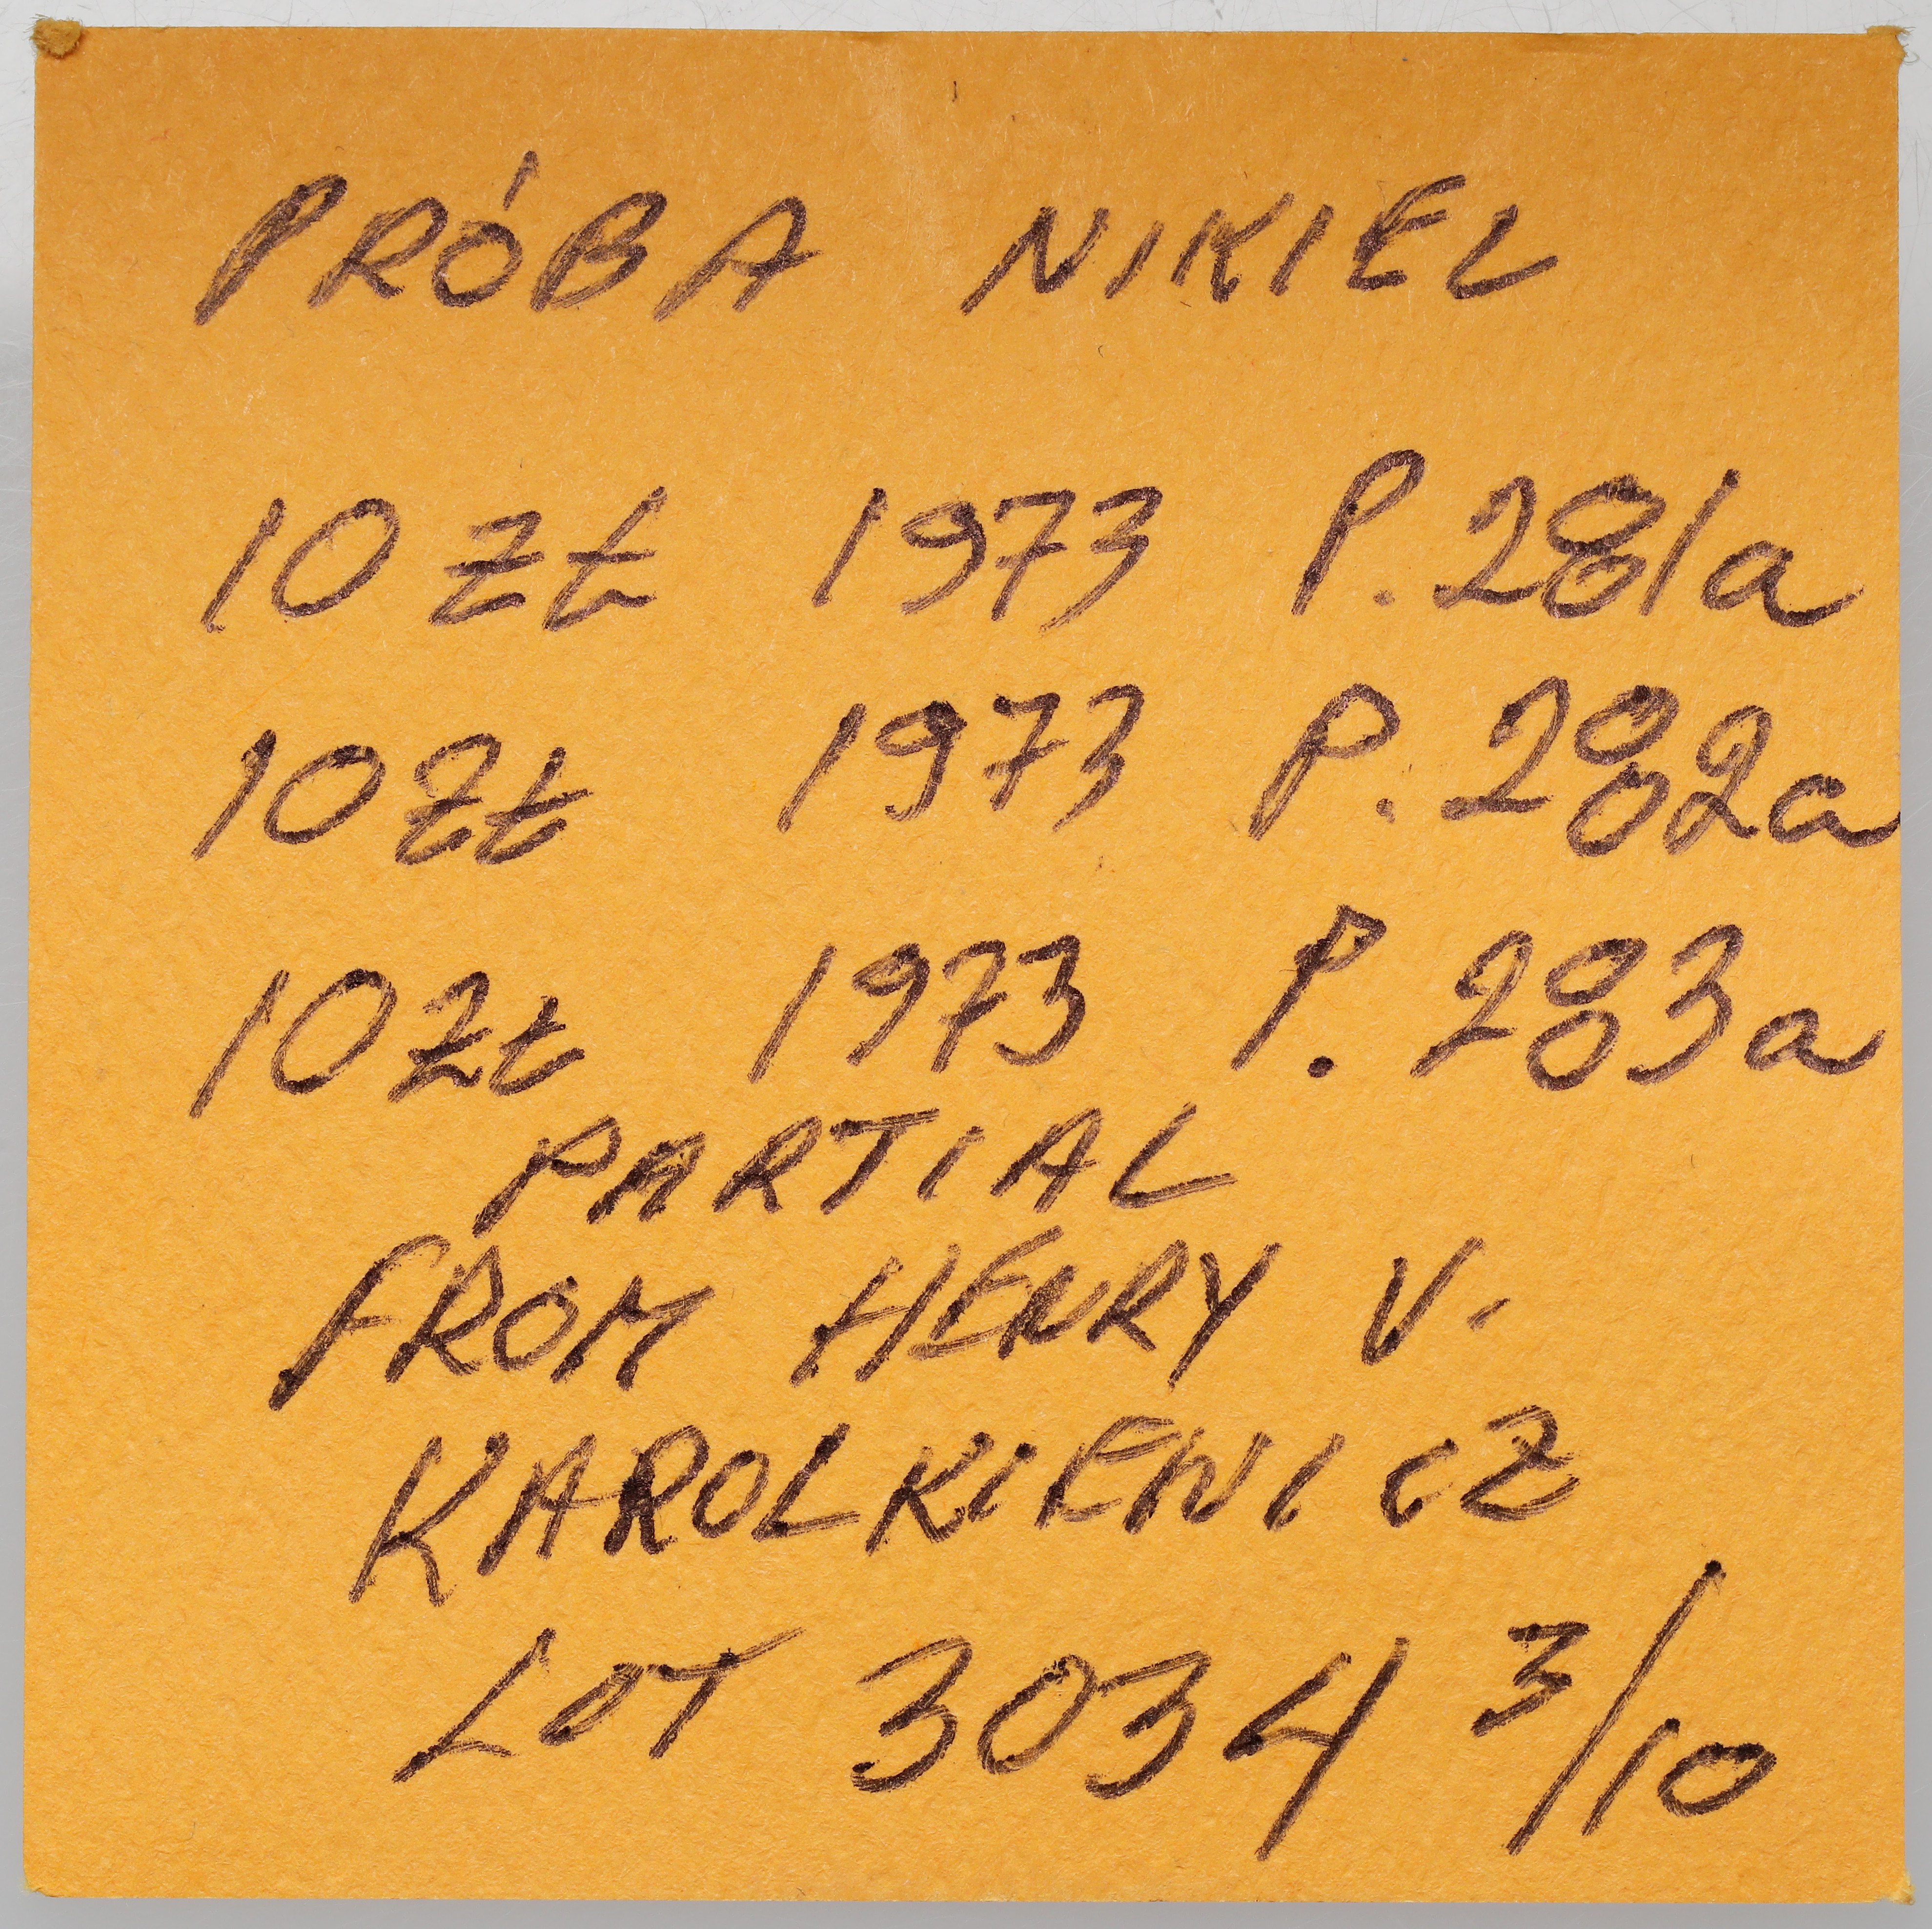 PRÓBA NIKIEL
10 Zł 1973 P. 281a
10 Zł 1973 P. 282a
10 Zł 1973 P. 283a
PARTIAL
FROM HENRY V.
KAROLKIEWICZ
LOT 3034 3/10